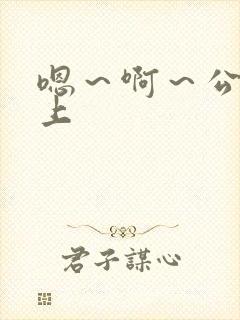 嗯～啊～公
上
君子謀心